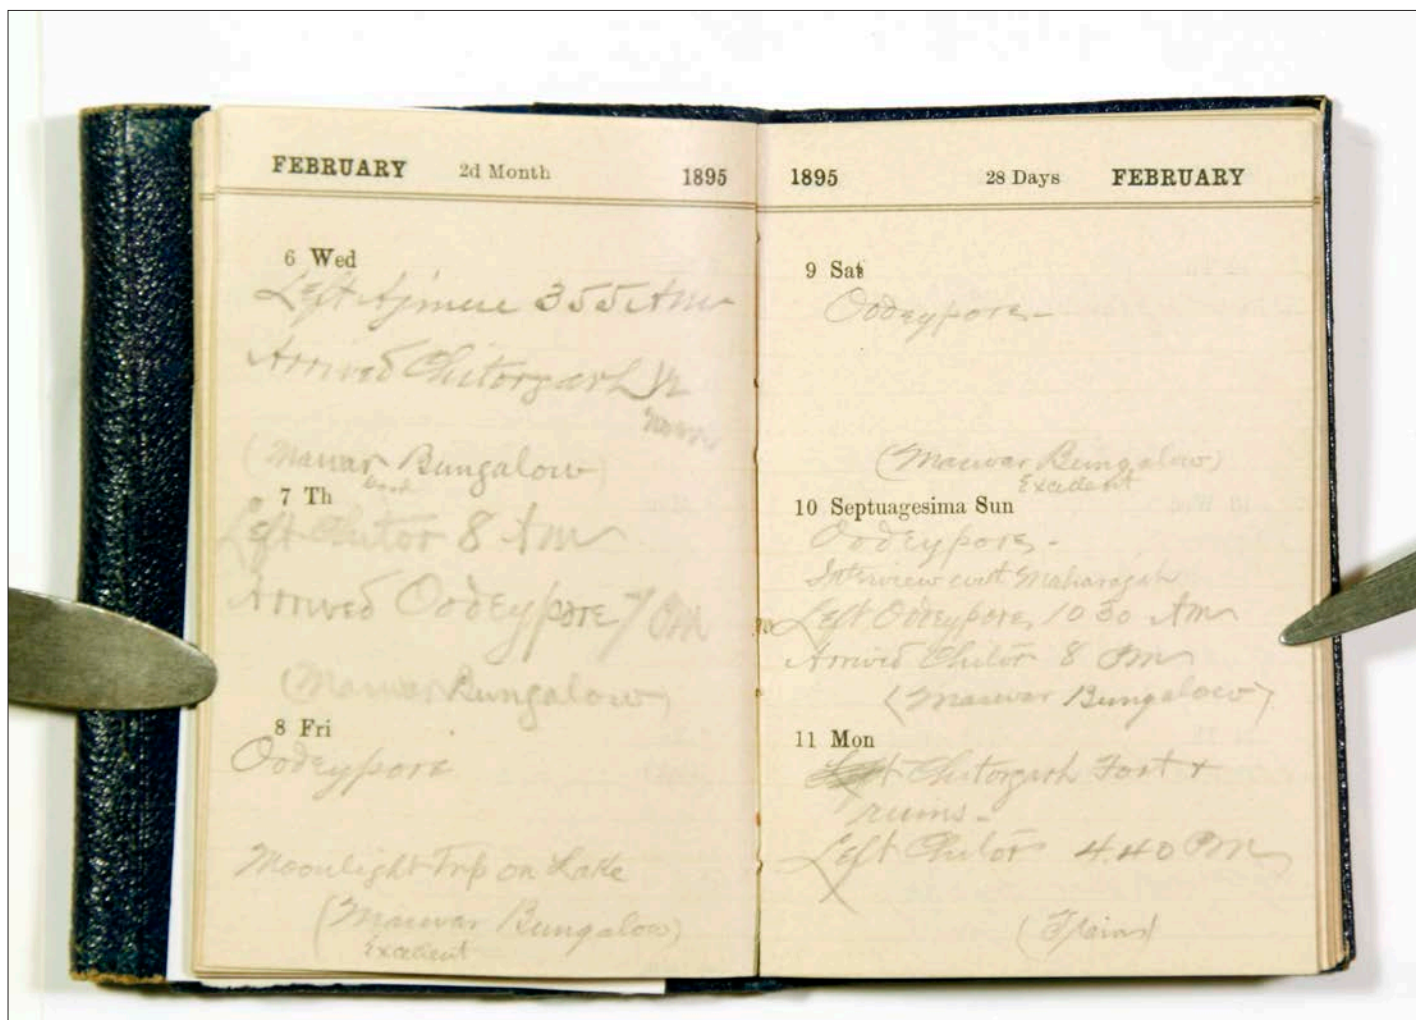 FEBRUARY 2d Month 1895
6 Wed
Left Ajmere 3 55 Am
Arrived Chitorgarh
(Marwar Bungalow)
7 Th
Left Chitor 8 Am
Arrived Oodeypore 7 Pm
(Marwar Bungalow)
8 Fri
Oodeypore
Moonlight Trip on Lake
(Marwar Bungalow)
Excellent
1895 28 Days FEBRUARY
9 Sat
Oodeypore -
(Marwar Bungalow)
Excellent
10 Septuagesima Sun
Oodeypore -
Interview with Maharajah
Left Oodeypore 10 30 Am
Arrived Chitor 8 Pm
(Marwar Bungalow)
11 Mon
Chitorgarh Fort +
ruins -
Left Chitor 4 40 Pm
(Train)